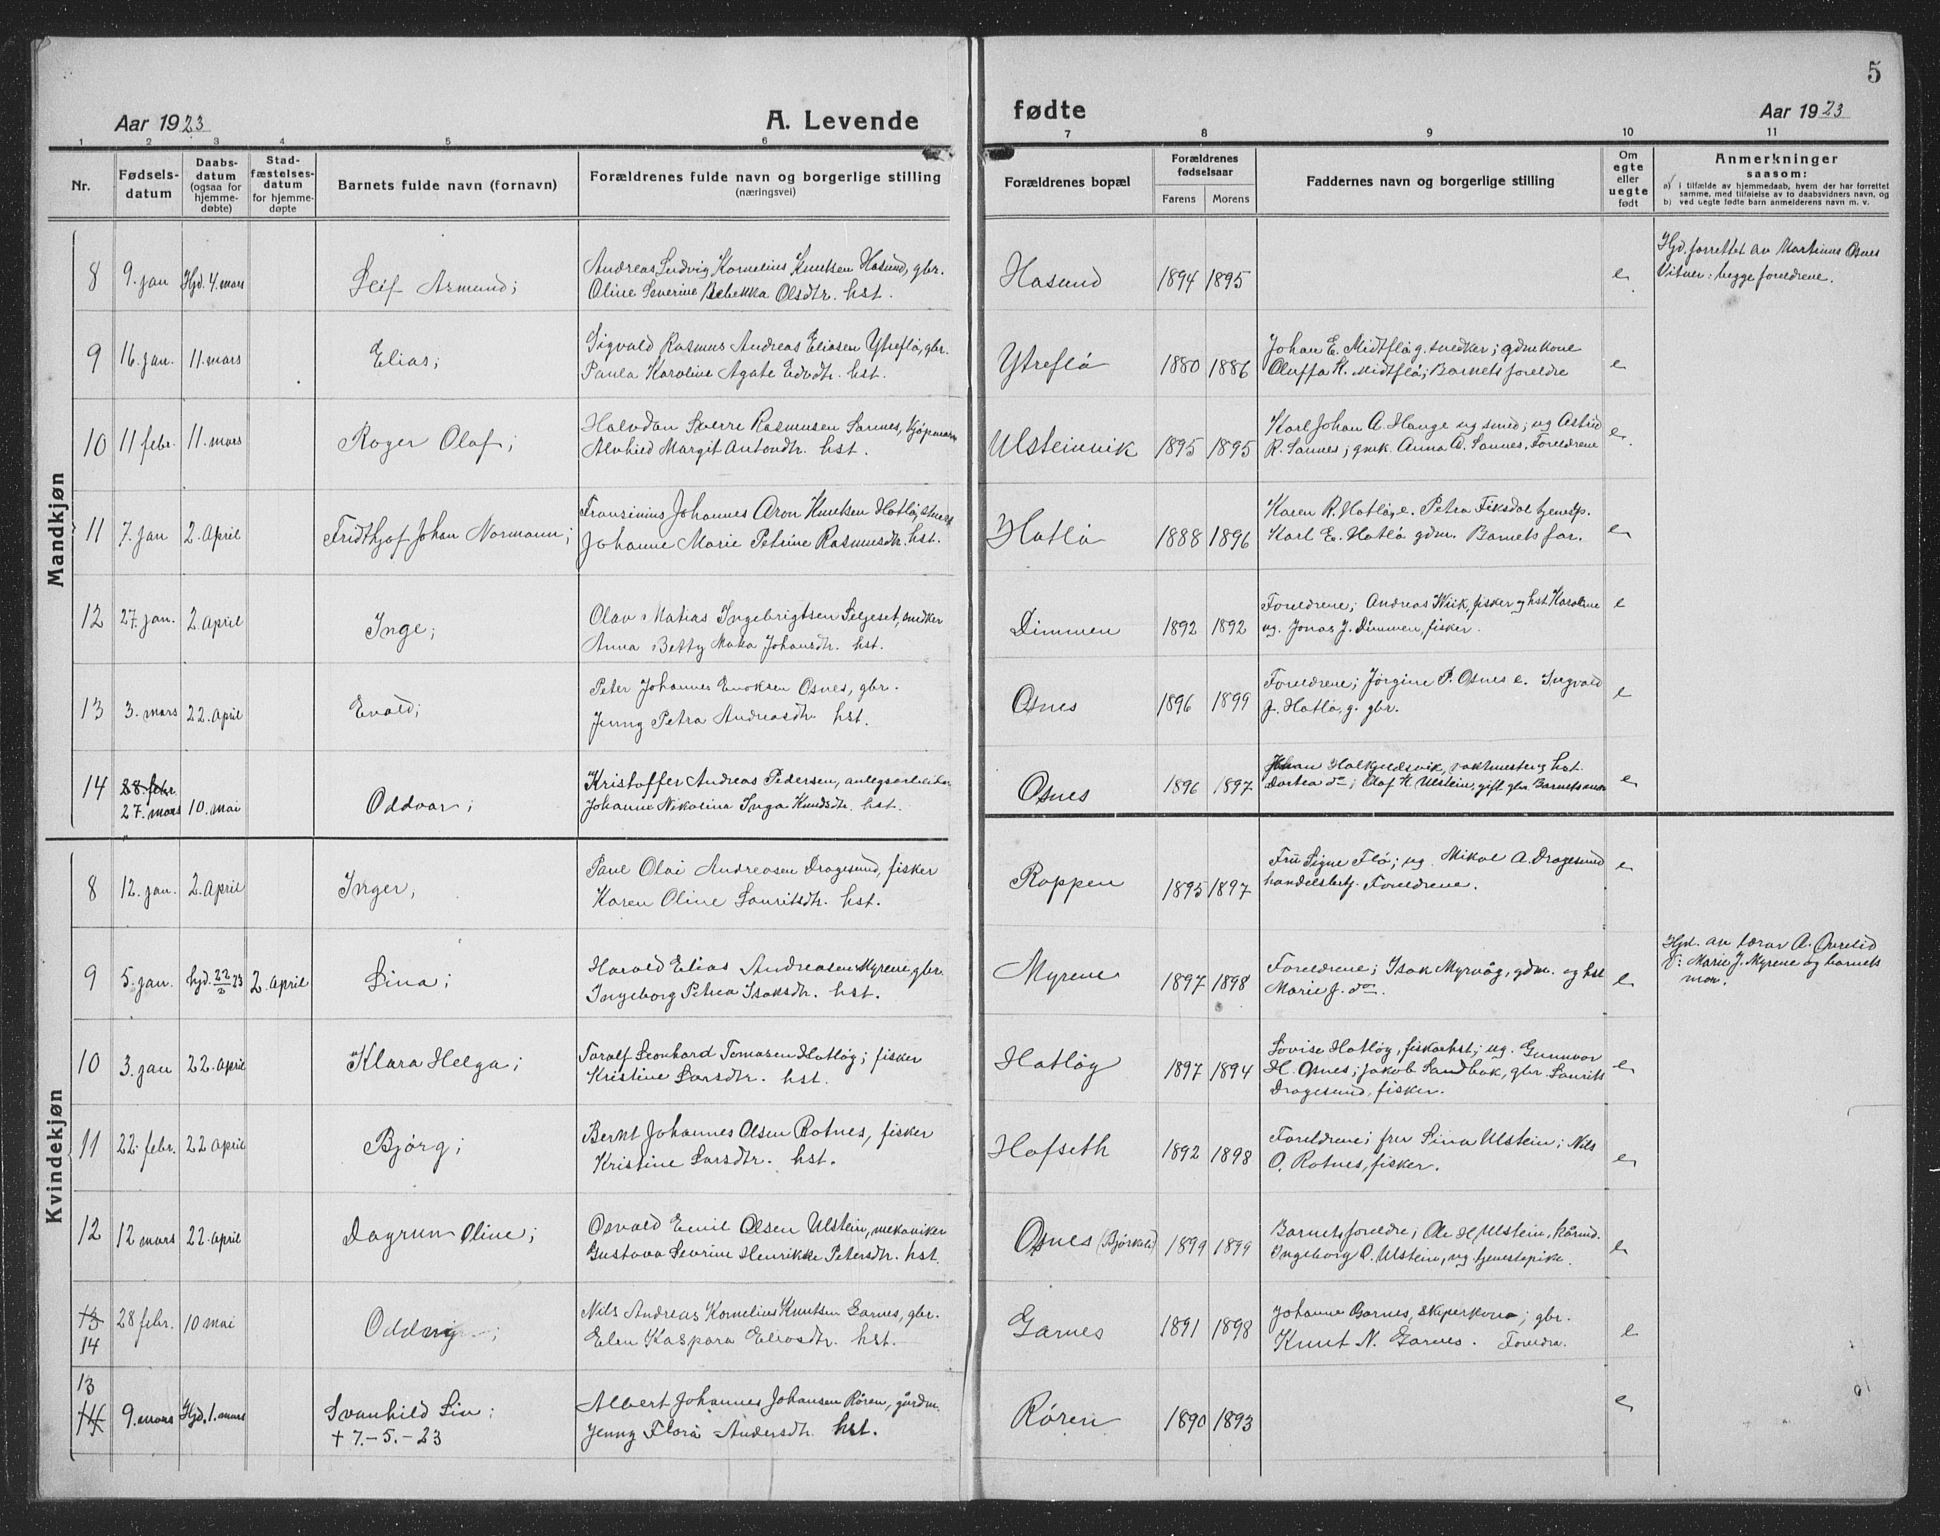 5
Aar 1923
A. Levende
fødte
Aar 1923
1 2 3 4 5 6 7 8 9 10 11
Nr.
Fødsels-
datum
Daabs-
datum
(ogsaa for
hjemme-
døbte)
Stad-
fæstelses-
datum
for hjemme-
døpte
Barnets fulde navn (fornavn)
Forældrenes fulde navn og borgerlige stilling
(næringsvei)
Forældrenes bopæl
Forældrenes
fødselsaar
Farens Morens
Faddernes navn og borgerlige stilling
Om
egte
eller
uegte
født
Anmerkninger
saasom:
a) i tilfælde av hjemmedaab, hvem der har forrettet
samme, med tilføielse av to daabsvidners navn, og
b) ved uegte fødte barn anmelderens navn m. v.
Mandkjøn
8 9. jan Hjd. 4. mars Leif Asmund;
Andreas Ludvig Kornelius Knutsen Hasund, gbr.
Oline Severine Rebekka Olsdtr. hst.
Hasund 1894 1895 e
Hjd. forrettet av Martinus Osnes
Vitner: begge foreldrene.
9 16. jan. 11. mars Elias;
Sigvald Rasmus Andreas Eliasen Ytreflø, gbr.
Paula Karoline Agate Edvdtr. hst.
Ytreflø 1880 1886
Johan E. Midtflø g. snedker; gdmkone
Oluffa K. Midtflø; Barnets foreldre
e
10 11 febr. 11. mars Roger Olaf;
Halvdan Sverre Rasmusen Sannes, kjøpmann
Alvhild Margit Antondtr. hst.
Ulsteinvik 1895 1895
Karl Johan A. Hauge ug smed; ug Astrid
R. Sannes; gmk. Anna A. Sannes, Foreldrene
e.
11 7. jan 2. April Fridthjof Johan Normann;
Fransinius Johannes Aron Knutsen Hatlø,
Johanne Marie Petrine Rasmusdtr. hst.
Hatlø 1888 1896
Karen R. Hatlø, e. Petra Fiksdal tjenesp.
Karl E. Hatlø gdm. Barnets far.
e
12 27. jan. 2. April Inge;
Olav Matias Ingebrigtsen Seljeset, snidker
Anna Betty Maka Johansdtr. hst.
Dimmen 1892 1892
Foreldrene; Andreas Wiik, fisker og hst Karoline
ug. Jonas J. Dimmen, fisker.
e
13 3. mars 22. April Evald;
Peter Johannes Enoksen Osnes, gbr.
Jenny Petra Andreasdtr. hst.
Osnes 1896 1899
Foreldrene; Jørgine P. Osnes e. Ingvald
J. Hatlø, g. gbr.
e
14 28. febr. 27. mars 10. mai Oddvar;
Kristoffer Andreas Pedersen, anlegsarbeider
Johanne Nikolina Inga Knudsdtr. hst.
Osnes 1896 1897
Johan Halkjeldsvik, vaktmester og hst.
Dortea do; Olaf K. Ulstein, gift gbr. Barnets mor
e
Kvindekjøn
8 12. jan. 2. April Inger;
Paul Olai Andreasen Dragesund, fisker
Karen Oline Lauritsdtr. hst.
Roppen 1895 1897
Frü Signe Flø; ug. Mikal A. Dragesund
handelsbetj. Foreldrene.
e
9 5. jan. hjd. 22/2 23 2. April Lina;
Harald Elias Andreasen Myrene, gbr.
Ingeborg Petrea Isaksdtr. hst.
Myrene 1897 1898
Foreldrene; Isak Myrvåg, gdm. og hst
Marie J. do.
e
Hjd. av lærar A. Øvrelid
V: Marie J. Myrene og barnets
mor.
10 3. jan 22. April Klara Helga;
Toralf Leonhard Tomasen Hatløy; fisker
Kristine Larsdtr. hst.
Hatløy 1897 1894
Lovise Hatløy, fiskarhst; ug. Gunnvor
H. Osnes; Jakob Sandbak, gbr. Laurits
Dragesund, fisker.
e
11 22. febr. 22 April Bjørg;
Bernt Johannes Olsen Rotnes, fisker
Kristine Larsdtr. hst.
Hofseth 1892 1898
Foreldrene; fru Lina Ulstein; Nils
O. Rotnes, fisker.
e
12 12 mars 22. April Dagrun Oline;
Osvald Emil Olsen Ulstein, mekaniker
Gustava Sevrine Henrikke Petersdtr. hst.
Osnes (Bjørkeli) 1899 1899
Barnets foreldre; Ole H. Ulstein, kårmd.
Ingeborg O. Ulstein, ug tjenestepike.
e
13 14 28 febr. 10 mai Oddny;
Nils Andreas Kornelius Knutsen Garnes, gbr.
Elen Kaspara Eliasdtr. hst.
Garnes 1891 1898
Johanne Garnes, skiperkona; gbr.
Knut N. Garnes. Foreldra.
e
13 14 9. mars Hjd. 1. mars Svanhild Liv;
† 7.-5.-23
Albert Johannes Johansen Røren, gårdm.
Jenny Flora Andersdtr. hst.
Røren 1890 1893 e